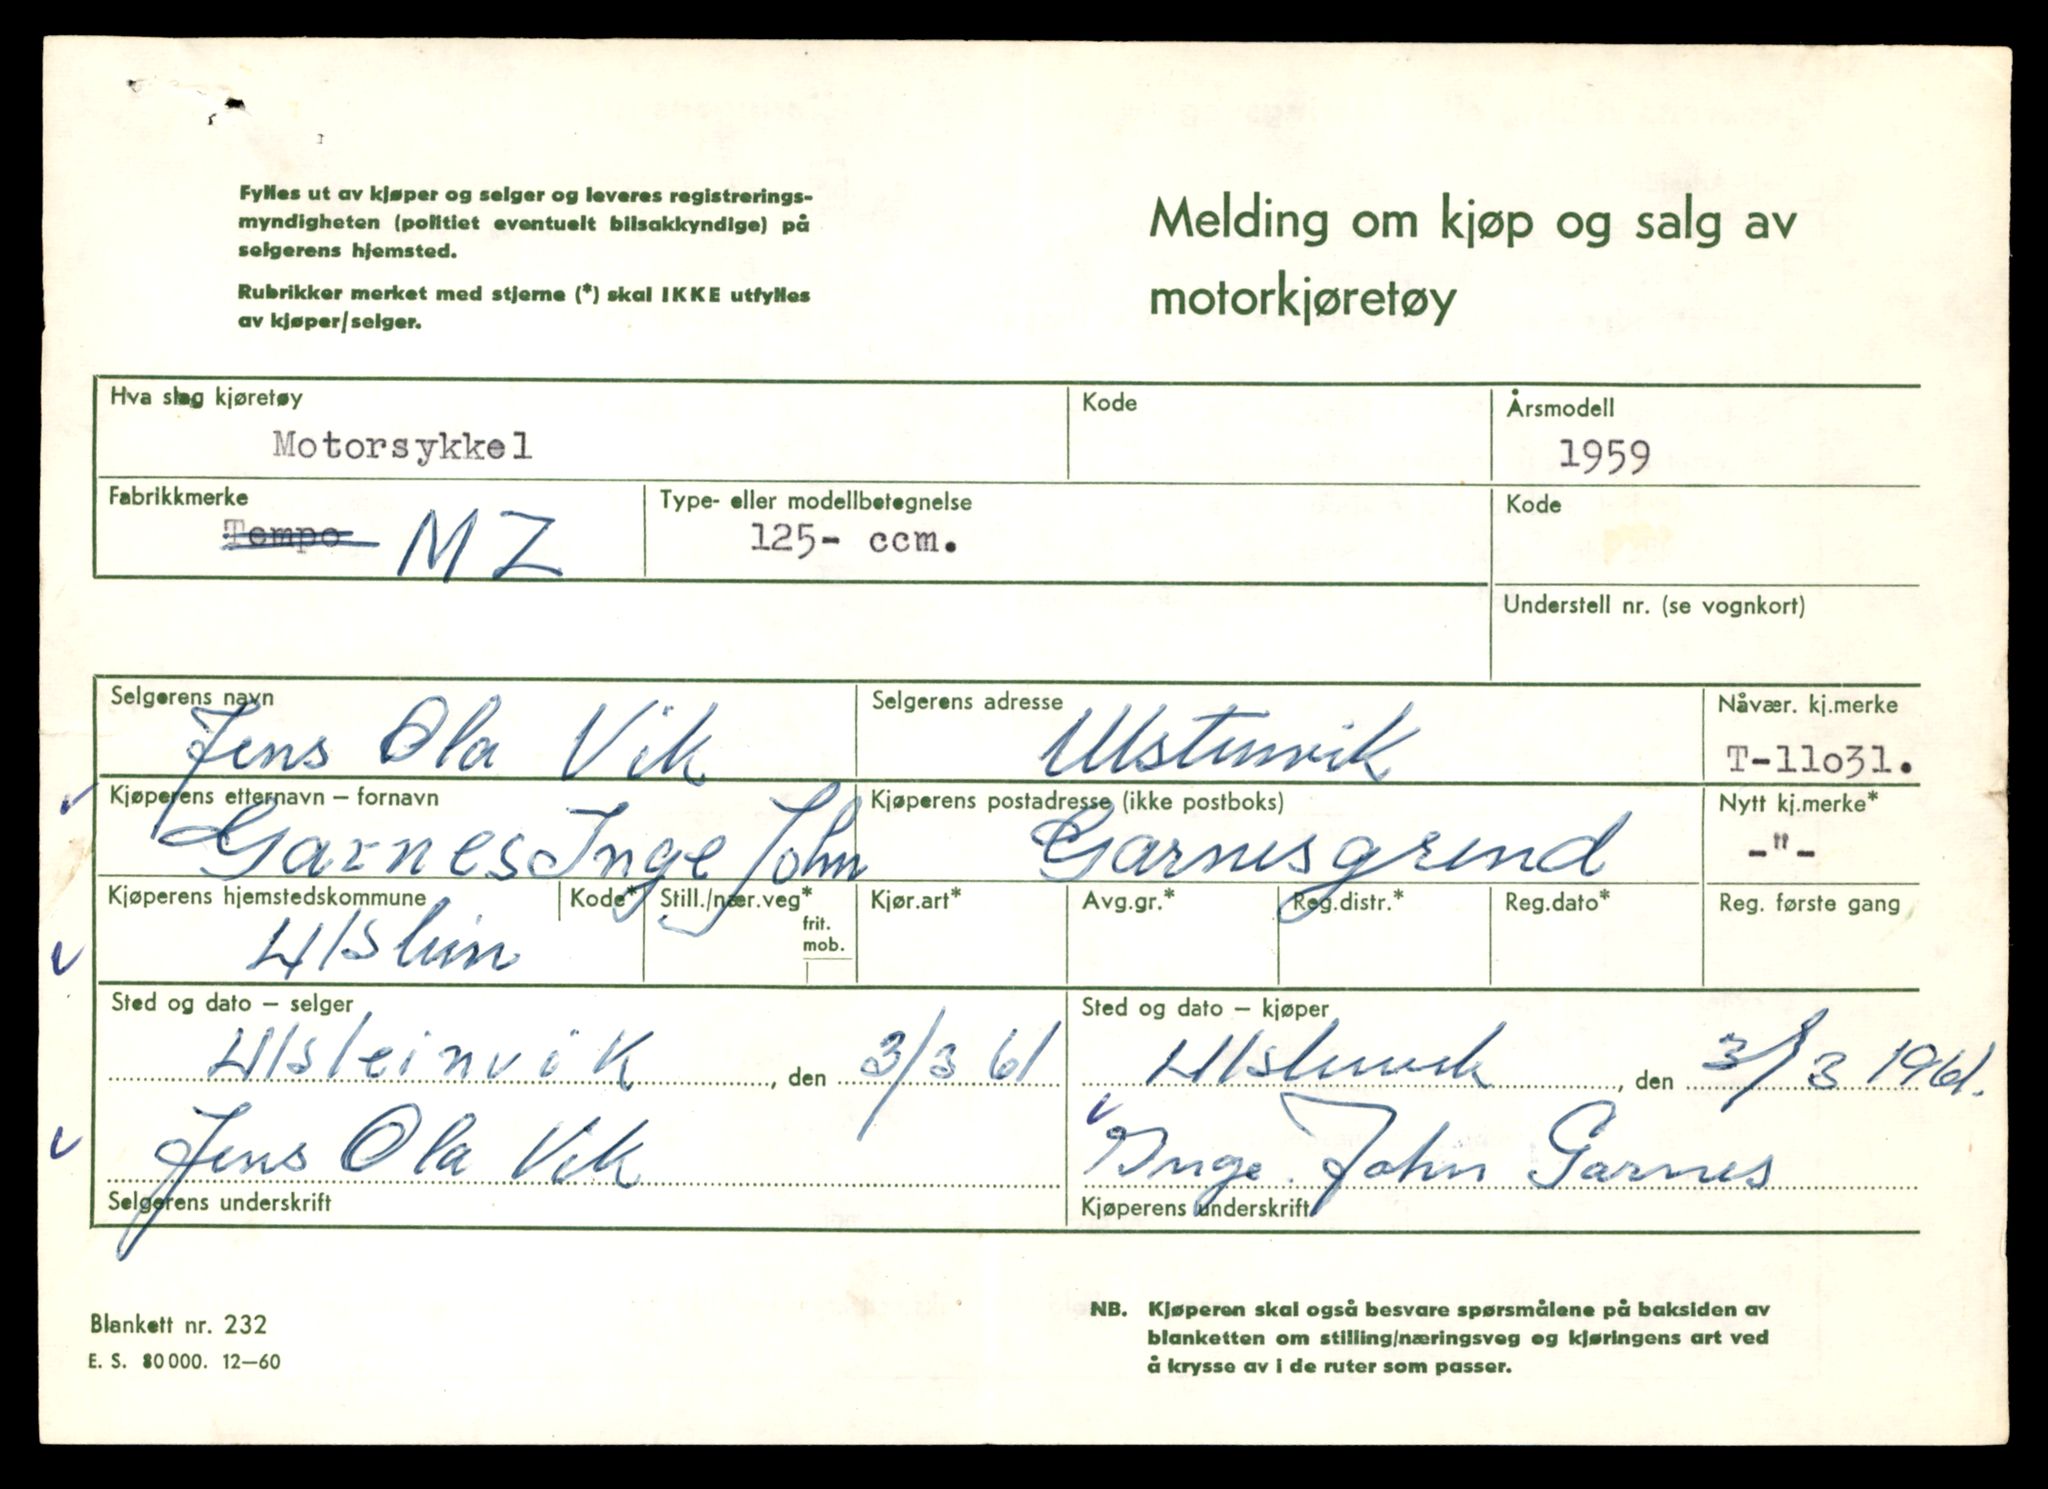 Fylles ut av kjøper og selger og leveres registrerings-
myndigheten (politiet eventuelt bilsakkyndige) på
selgerens hjemsted.
Rubrikker merket med stjerne (*) skal IKKE utfylles
av kjøper/selger.
Melding om kjøp og salg av
motorkjøretøy
Hva slag kjøretøy
Motorsykkel
Kode
Årsmodell
1959
Fabrikkmerke
Tempo MZ
Type- eller modellbetegnelse
125- ccm.
Kode
Understell nr. (se vognkort)
Selgerens navn
Jens Ola Vik
Selgerens adresse
Ulsteinvik
Nåvær. kj.merke
T-11031.
Kjøperens etternavn – fornavn
Garnes Inge John
Kjøperens postadresse (ikke postboks)
Garnesgrend
Nytt kj.merke*
-"-
Kjøperens hjemstedskommune
Ulstein
Kode*
Still./nær.veg*
frit.
mob.
Kjør.art*
Avg.gr.*
Reg.distr.*
Reg.dato*
Reg. første gang
Sted og dato – selger
Ulsteinvik, den 3/3 61
Jens Ola Vik
Selgerens underskrift
Sted og dato – kjøper
Ulsteinvik, den 3/3 1961.
Inge John Garnes
Kjøperens underskrift
Blankett nr. 232
E. S. 80 000. 12–60
NB. Kjøperen skal også besvare spørsmålene på baksiden av
blanketten om stilling/næringsveg og kjøringens art ved
å krysse av i de ruter som passer.